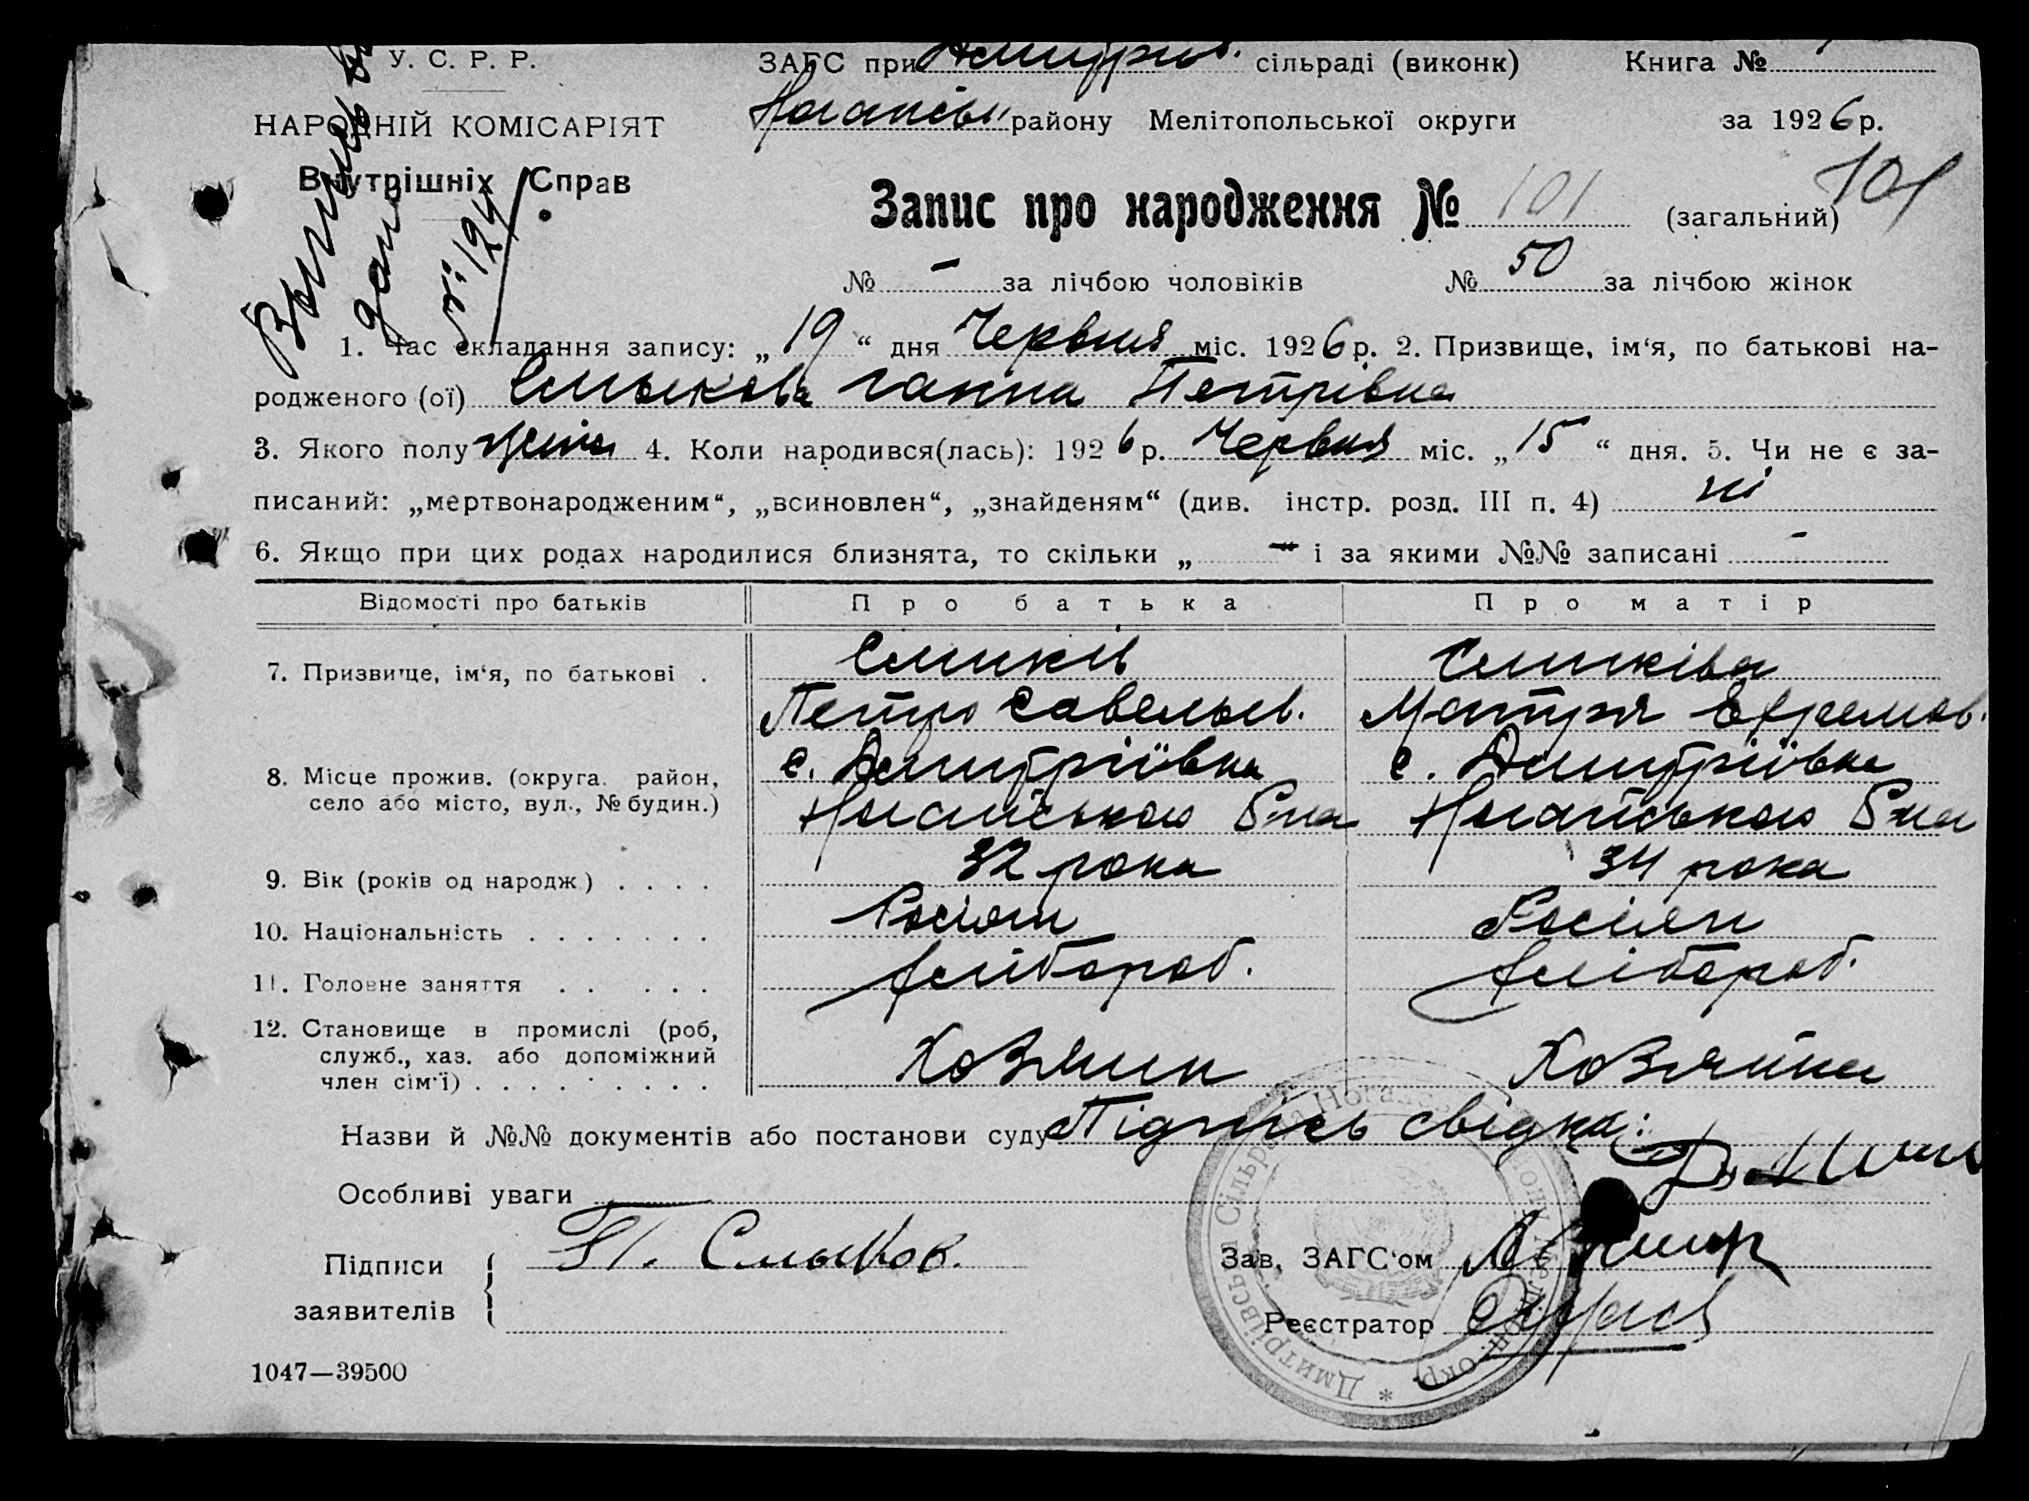 У. С. Р. Р.
НАРОДНІЙ КОМІСАРІЯТ
Внутрішніх Справ
ЗАГС при сільраді (виконк) Книга №
району Мелітопольської округи за 1926 р.
Запис про народження № 101 (загальний) 101
№ – за лічбою чоловіків № 50 за лічбою жінок
№ 124
1. Час складання запису: „ 19 “ дня Червня міс. 1926 р. 2. Призвище, ім‘я, по батькові на-
родженого (ої) Смыкова Ганна Петрівна
3. Якого полу 4. Коли народився(лась): 1926 р. Червня міс. „ 15 “ дня. 5. Чи не є за-
писаний: „мертвонародженим“, „всиновлен“, „знайденям“ (див. інстр. розд. III п. 4) ні
6. Якщо при цих родах народилися близнята, то скільки „ – “ і за якими №№ записані –
Відомості про батьків Про батька Про матір
7. Призвище, ім‘я, по батькові . Смиків Смиківа
Петро Савельев. Мотря Ефремов.
8. Місце прожив. (округа. район, с. Дмитріївка с. Дмитріївка
село або місто, вул., № будин.) Ногайського Р-на Ногайського Р-на
9. Вік (років од народж.) . . . . 32 рока 34 рока
10. Національність . . . . . . . Росіян Росіян
11. Головне заняття . . . . . Хлібороб. Хлібороб.
12. Становище в промислі (роб,
служб., хаз. або допоміжний Хозяин Хозяйка
член сім‘ї) . . . . . . . . .
Назви й №№ документів або постанови суду Підпись свідка:
Особливі уваги —
Підписи П. Смыков. Зав. ЗАГС‘ом
заявителів Реєстратор
1047—39500